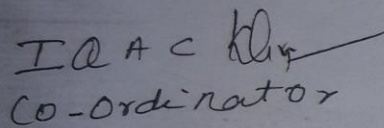 IQAC
Co-Ordinator